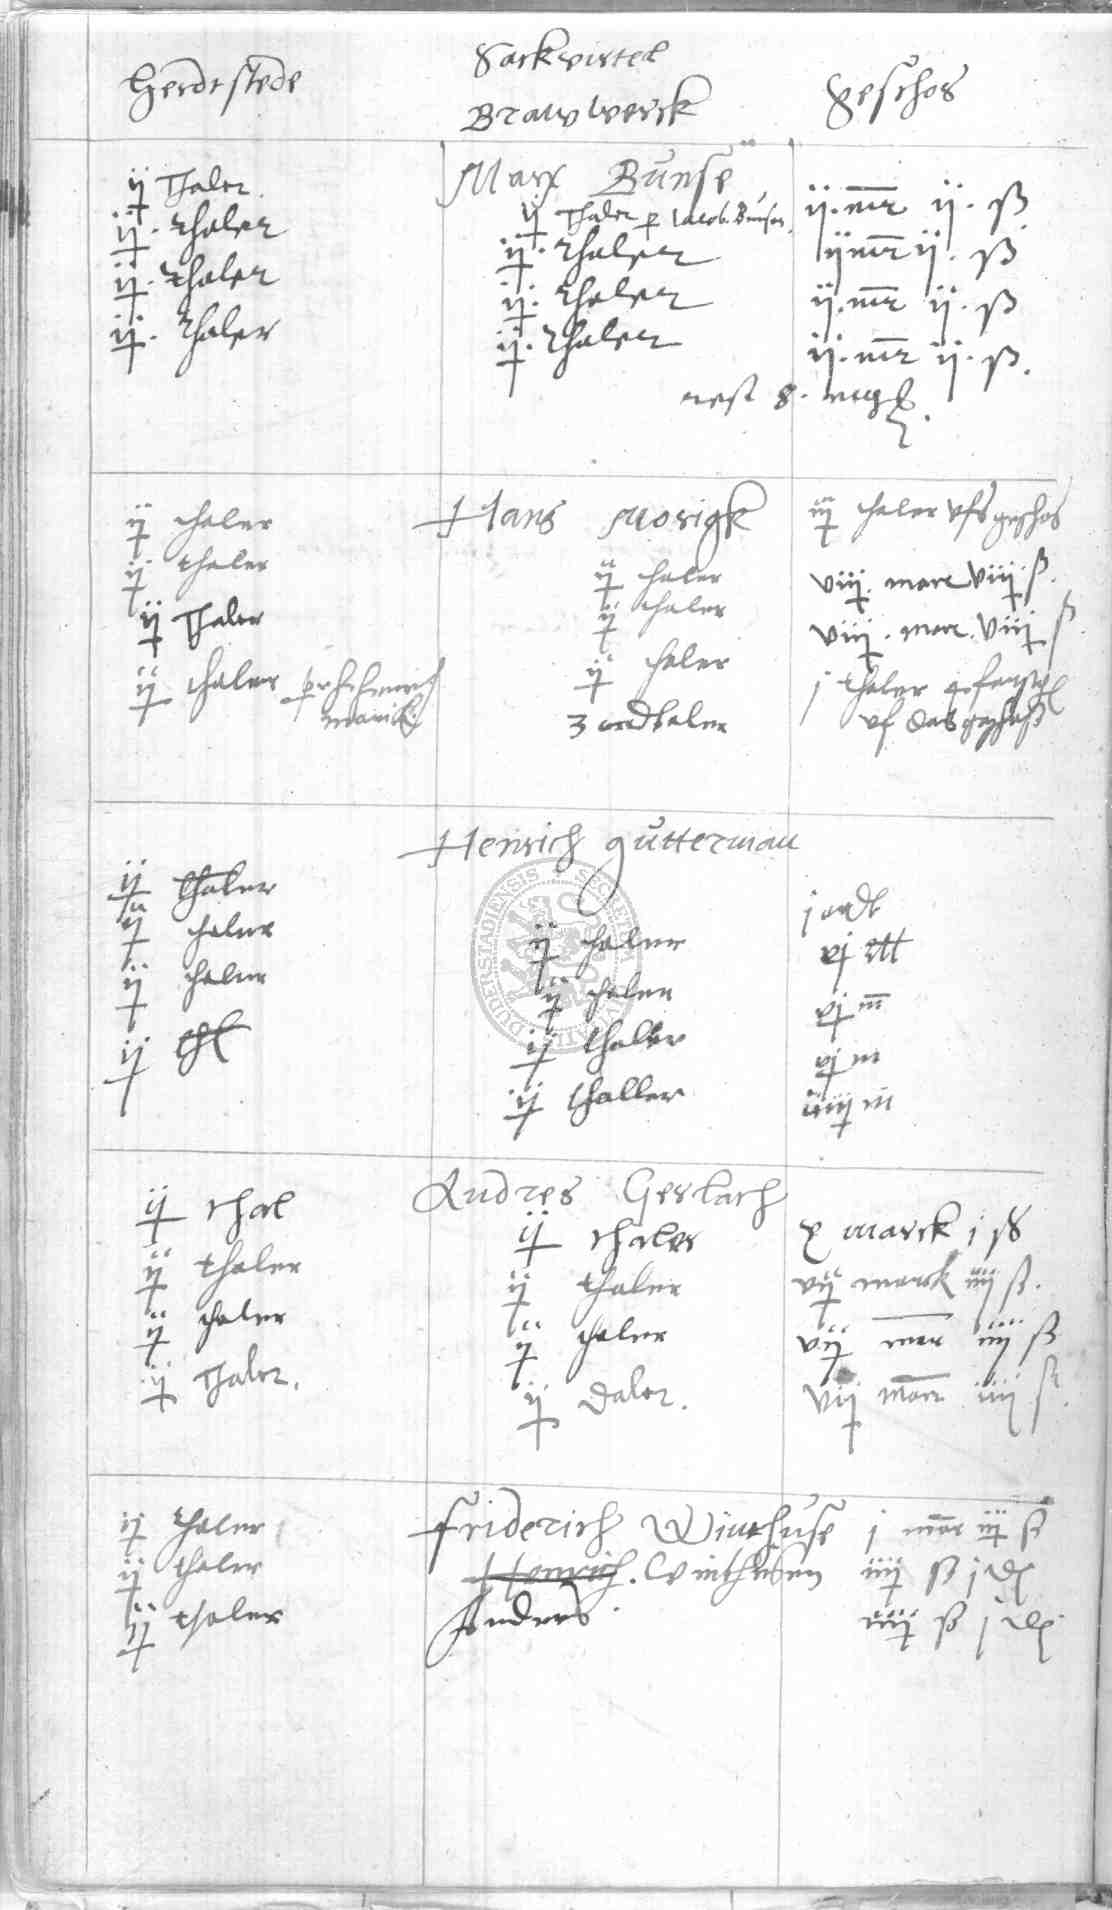 Sackvirtel
Herdtstede Brawwerck Geschos
Marx Bunse
ij Thaler. ij Thaler p Jacob Bunsen. ij. mr ij. ß
ij. thaler ij. thaler ij mr ij. ß
ij. thaler ij. thaler ij. mr ij. ß
ij. thaler ij. thaler ij. mr ij. ß.
rest 8.
Hans Morigk
ij thaler iij thaler vfs geschos
ij thaler ij thaler viij. marc viij ß.
ij Thaler ij thaler viij. marc. viij ß
ij thaler ij thaler j thaler
3 ordthaler vf das geschoß
Henrich Gutterman
ij thaler j ordt
ij thaler ij thaler vj
ij thaler ij thaler vj m
ij thl ij thaler vj m
ij thaller iiij m
Andres Gerlach
ij thal ij thaler x marck j ß
ij thaler ij thaler vij marck iiij ß.
ij thaler ij thaler vij mar iiij ß
ij Thaler. ij Daler. vij marc iiij ß.
ij thaler Friderich Winthuse j mar iij ß
ij thaler Henrich. Winthusen iiij ß j
ij thaler Anders iiij ß j
DUDERSTADIENSIS SECRETUM CIVITATIS